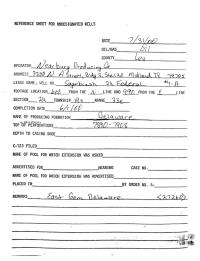 REFERENCE SHEET FOR UNDESIGNATED WELLS
DATE 7/31/00
OIL/GAS Oil
COUNTY Lea
OPERATOR Nearburg Producing Co
ADDRESS 3300 N A Street, Bldg 2, Ste 120 Midland TX 79705
LEASE NAME, WELL NO. Sagebrush 24 Federal #1-A
FOOTAGE LOCATION 660 FROM THE LINE AND 990 FROM THE E LINE
SECTION 24 TOWNSHIP 19s RANGE 33e
COMPLETION DATE 6/1/00
NAME OF PRODUCING FORMATION Delaware
TOP OF PERFORATIONS 7890-7908
DEPTH TO CASING SHOE
C-123 FILED
NAME OF POOL FOR WHICH EXTENSION WAS ASKED
ADVERTISED FOR HEARING CASE NO.
NAME OF POOL FOR WHICH EXTENSION WAS ADVERTISED
PLACED IN BY ORDER NO. R-
REMARKS East Gem Delaware